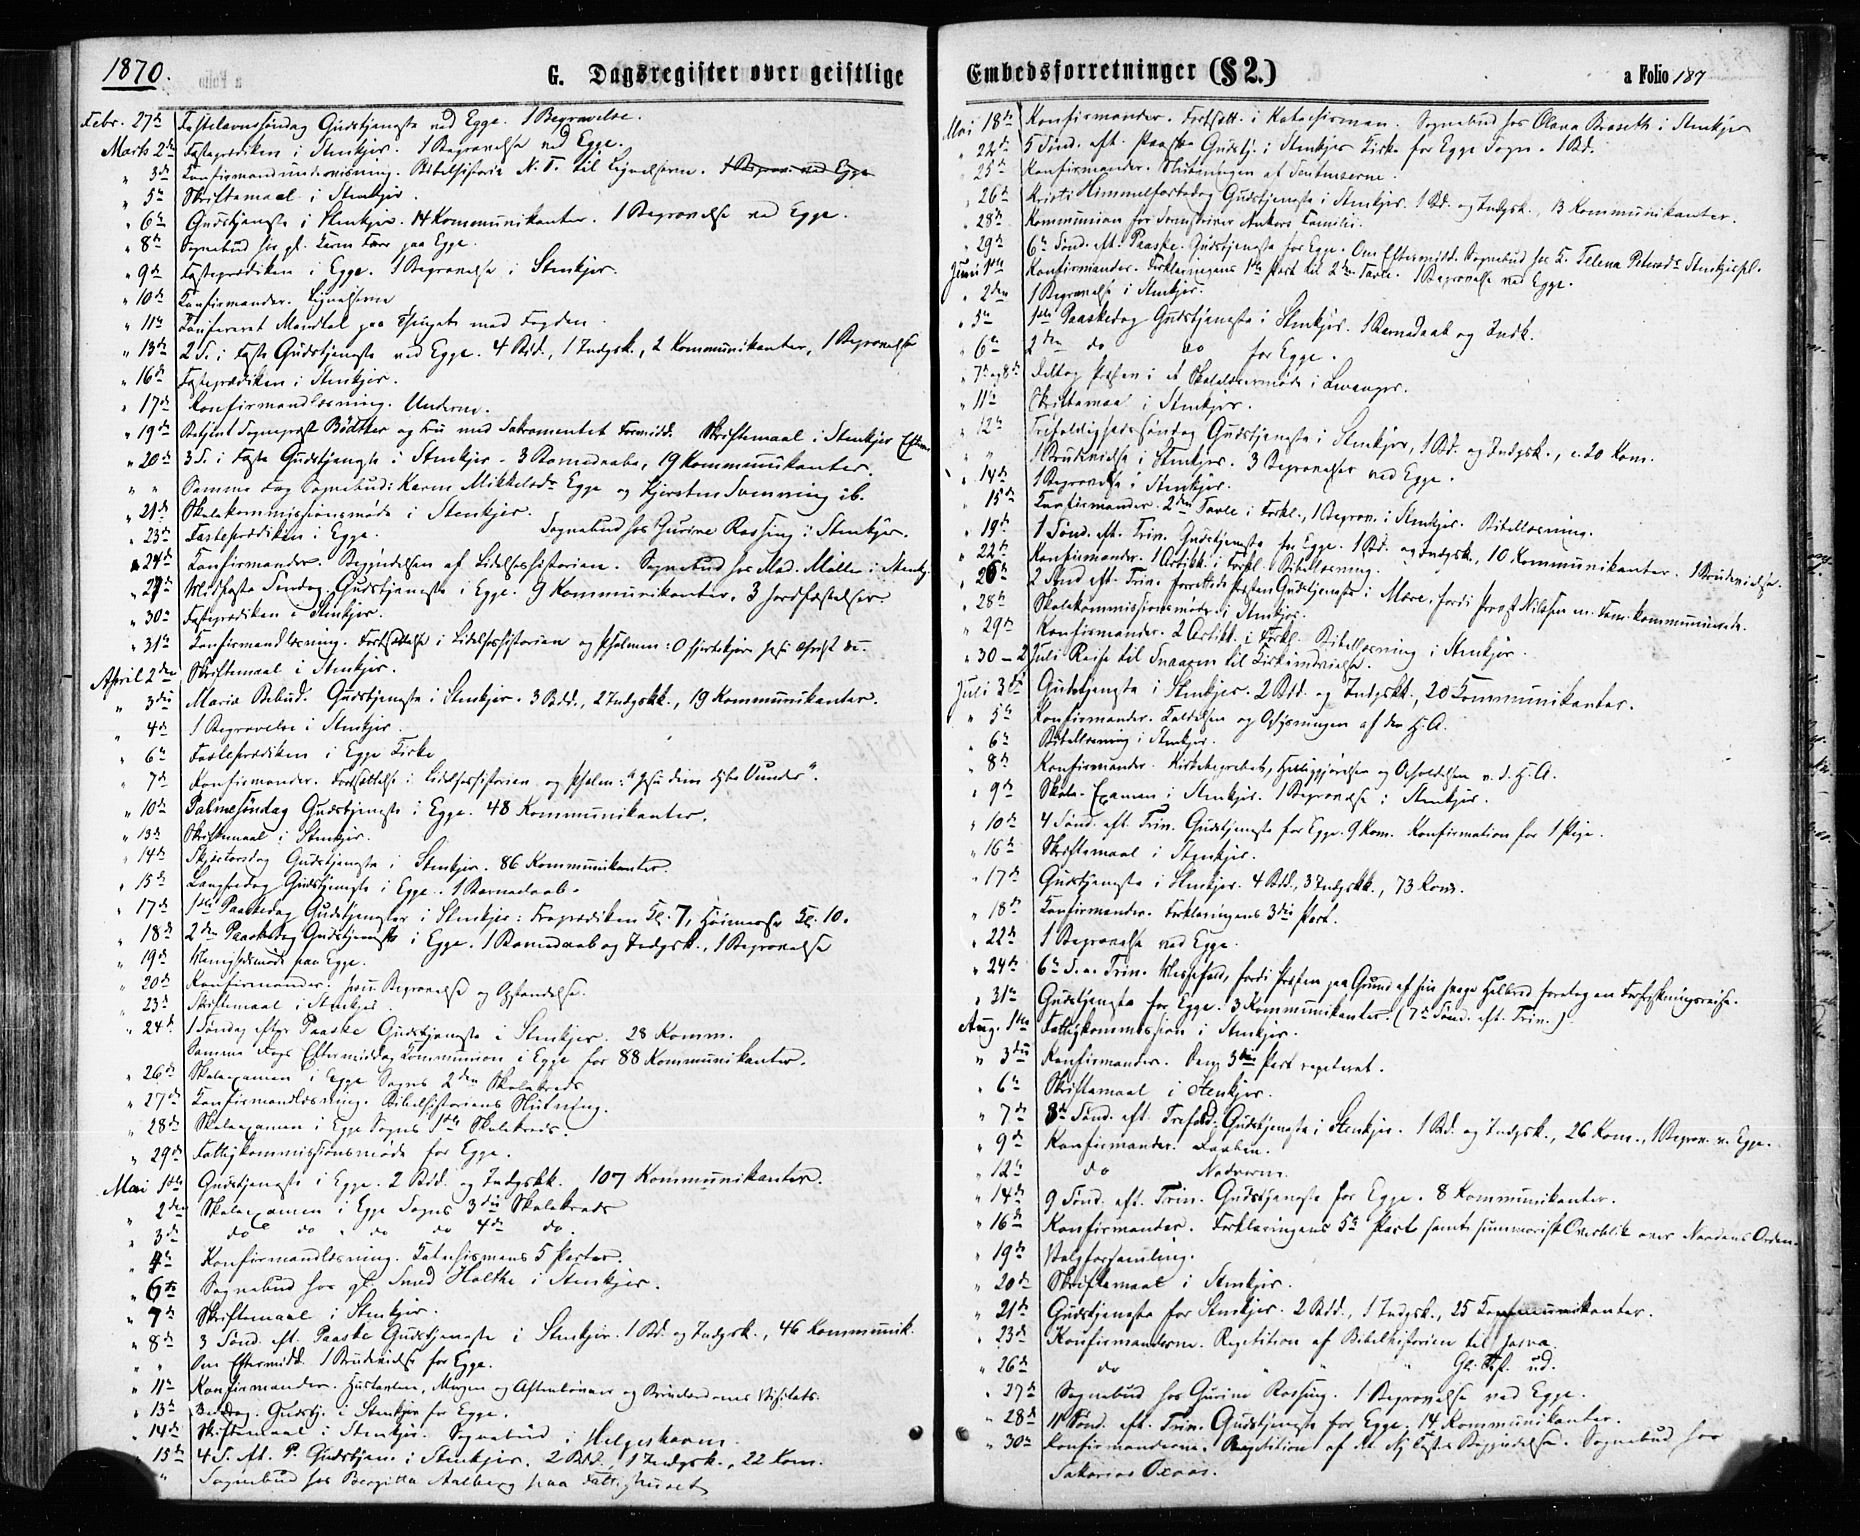 1870.
G. Dagsregister over geistlige
Febr. 27de Fastelavnssöndag Gudstjeneste ved Egge. 1 Begravelse.
Marts 2den Fasteprædiken i Stenkjer. 1 Begravelse ved Egge.
" 3die Konfirmandundervisning. Bibelhistorie N. T. til Lignelserne. 1 Begrav. ved Egge
" 5te Skriftemaal i Stenkjer.
" 6te Gudstjeneste i Stenkjer. 14 Kommunikanter. 1 Begravelse ved Egge.
" 8de Sognebud hos gl. Karen paa Egge.
" 9de Fasteprædiken i Egge. 1 Begravelse i Stenkjer.
" 10de Konfirmander. Lignelserne
" 11te Konfereret Mandtal paa Thinget med Fogden.
" 13de 2 S. i Faste Gudstjeneste ved Egge. 4 Bd., 1 Indgsk., 2 Kommunikanter, 1 Begravelse
" 16de Fasteprædiken i Stenkjer.
" 17de Konfirmandlæsning. Underne.
" 19de Betjent Sognepræst Bödtker og Fru med Sakramentet Formidd. Skriftemaal i Stenkjer Efterm.
" 20de 3 S. i Faste Gudstjeneste i Stenkjer. 3 Barnedaabe, 19 Kommunikanter.
" " Samme Dag Sognebud: Karen Mikkelsdr Egge og Kjersten Svenning ib.
" 21de Skolekommissionsmöde i Stenkjer.
" 23de Fasteprædiken i Egge. Sognebud hos Gurine Rossing i Stenkjer.
" 24de Konfirmander. Begyndelsen af Lidelseshistorien. Sognebud hos Mad. Möller i Stenkj.
" 27de Midfaste Söndag Gudstjeneste i Egge. 9 Kommunikanter. 3 Jordfæstelser.
" 30te Fasteprædiken i Stenkjer.
" 31te Konfirmandlæsning. Fortsættelse i Lidelseshistorien og Psalmen: O Hjertekjære Jesu Christ
April 2den Skriftemaal i Stenkjer.
" 3die Mariæ Bebud. Gudstjeneste i Stenkjer. 3 Bdd., 2 Indgskk., 19 Kommunikanter.
" 4de 1 Begravelse i Stenkjer.
" 6te Fasteprædiken i Egge Kirke
" 7de Konfirmander. Fortsættelse i Lidelseshistorien og Psalm: "Jesu dine dybe Vunder".
" 10de Palmesöndag Gudstjeneste i Egge. 48 Kommunikanter.
" 13de Skriftemaal i Stenkjer.
" 14de Skjertorsdag Gudstjeneste i Stenkjer. 86 Kommunikanter.
" 15de Langfredag Gudstjeneste i Egge. 1 Barnedaab.
" 17de 1ste Paaskedag Gudstjenester i Stenkjer: Froprædiken Kl. 7, Höimesse Kl. 10.
" 18de 2den Paaskedag Gudstjeneste i Egge. 1 Barnedaab og Indgsk., 1 Begravelse
" 19de Menighedsmöde paa Egge.
" 20de Konfirmander. Jesu Begravelse og Opstandelse.
" 23de Skriftemaal i Stenkjer.
" 24de 1 Söndag efter Paaske Gudstjeneste i Stenkjer. 28 Komm.
Samme Dags Eftermiddag Kommunion i Egge for 88 Kommunikanter.
" 26de Skoleexamen i Egge Sogns 2den Skolekreds
" 27de Konfirmandlæsning. Bibelhistoriens Slutning.
" 28de Skoleexamen i Egge Sogns 1ste Skolekreds.
" 29de Fattigkommissionsmöde for Egge.
Mai 1ste Gudstjeneste i Egge. 2 Bdd. og Indgskk. 107 Kommunikanter.
" 2den Skoleexamen i Egge Sogns 3die Skolekreds
" 3die do do do do 4de do.
" 4de Konfirmandlæsning. Katechismens 5 Parter.
" 6te Sognebud hos gl. Smed Holthe i Stenkjer.
" 7de Skriftemaal i Stenkjer.
" 8de 3 Sönd. eft. Paaske Gudstjeneste i Stenkjer. 1 Bd. og Indgsk., 46 Kommunik.
" " Om Eftermidd. 1 Brudevielse for Egge.
" 11te Konfirmander. Hustavlen, Morgen og Aftenbönner og Vishitets.
" 13de Bededag. Gudstj. i Stenkjer for Egge.
" 14de Skriftemaal i Stenkjer. Sognebud i Helgeskaven.
" 15de 4 S. eft. P. Gudstjen. i Stenkjer. 2 Bdd., 1 Indgsk., 22 Kom.
" Sognebud hos Bergitta Aalberg paa Fattighuset
Embedsforretninger (§ 2.)
a Folio 187
Mai 18de Konfirmander. Fortsatt. i Katechismen. Sognebud hos Olava Braseth i Stenkjer
" 22de 5 Sönd. eft. Paaske Gudstj. i Stenkjer Kirke for Egge Sogn. 1 Bd.
" 25de Konfirmander. Slutningen af Sententserne.
" 26de Kristi Himmelfartsdag Gudstjeneste i Stenkjer. 1 Bd. og Indgsk., 13 Kommunikanter.
" 28de Kommunion for Sorenskriver Ankers Familie.
" 29de 6te Sönd. eft. Paaske. Gudstjeneste for Egge. Om Eftermidd. Sognebud hos K. Telena Petersdr Stenkjerpl.
Juni 1ste Konfirmander. Forklaringens 1ste Part til 2den Tavle. 1 Begravelse ved Egge.
" 2den 1 Begravelse i Stenkjer.
" 5te 1ste Paaskedag Gudstjeneste i Stenkjer. 1 Barnedaab og Indk.
" 6te 2den do do for Egge.
" 7de og 8de Deltog Præsten i et Skolelærermöde i Levanger.
" 11te Skriftemaal i Stenkjer.
" 12te Trefoldighedssöndag Gudstjeneste i Stenkjer, 1 Bd. og Indgsk., c. 20 Kom.
" " 1 Brudevielse i Stenkjer. 3 Begravelser ved Egge.
" 14de 1 Begravelse i Stenkjer.
" 15de Konfirmander. 2den Tavle i Forkl., 1 Begrav. i Stenkjer. Bibellæsning.
" 19de 1 Sönd. eft. Trin. Gudstjeneste for Egge. 1 Bd. og Indgsk., 10 Kommunikanter. 1 Brudevielse.
" 22de Konfirmander. 1 Artikk. i Forkl. Bibellæsning.
" 26de 2 Sönd eft. Trin. forrettede Præsten Gudstjeneste i Mære, fordi Provst Nilssen m. Fam. kommunicerede.
" 28de Skolekommissionsmöde i Stenkjer.
" 29de Konfirmander. 2 Artikk. i Forkl. Bibellæsning i Stenkjer.
" 30 - 2 Juli Reise til Snaasen til Kirkeindvielse.
Juli 3die Gudstjeneste i Stenkjer. 2 Bdd. og Indgskk., 20 Kommunikanter.
" 5te Konfirmander. Kaldelsen og Oplysningen af den H. A.
" 6te Bibellæsning i Stenkjer.
" 8de Konfirmander. Kirkebegrebet, Helliggjörelsen og Opholdelsen v. d. H. A.
" 9de Skole-Examen i Stenkjer. 1 Begravelse i Stenkjer.
" 10de 4 Sönd. eft. Trin. Gudstjeneste for Egge. 9 Kom. Konfirmation for 1 Pige.
" 16de Skriftemaal i Stenkjer.
" 17de Gudstjeneste i Stenkjer. 4 Bdd., 3 Indgskk., 73 Kom.
" 18de Konfirmander. Forklaringens 3die Part.
" 22de 1 Begravelse ved Egge.
" 24de 6te S. e. Trin. Messefald, fordi Præsten paa Grund af sin svage Helbred foretog en Forfriskningsreise.
" 31te Gudstjeneste for Egge. 3 Kommunikanter. (7de Sönd. eft. Trin.)
Aug. 1ste Fattigkommission i Stenkjer.
" 3die Konfirmander. Den 3die Part repeteret.
" 6te Skriftemaal i Stenkjer.
" 7de 8de Sönd. eft. Trefold. Gudstjeneste i Stenkjer. 1 Bd. og Indgsk., 26 Kom., 1 Begrav. v. Egge.
" 9de Konfirmander. Daaben.
" 12te do Nadveren.
" 14de 9 Sönd. eft. Trin. Gudstjeneste for Egge. 8 Kommunikanter.
" 16de Konfirmander. Forklaringens 5te Part samt summarisk Overblik over Naadens Orden.
" 19de Valgforsamling.
" 20de Skriftemaal i Stenkjer.
" 21de Gudstjeneste for Stenkjer. 2 Bdd., 1 Indgsk., 25 Kommunikanter.
" 23de Konfirmanderne. Repetition af Bibelhistorien til Josva.
" 26de do " " " Gl. Tst. ud.
" 27de Sognebud hos Gurine Rossing. 1 Begravelse ved Egge.
" 28de 11 Sönd. eft. Trin. Gudstjeneste for Egge. 14 Kommunikanter.
" 30te Konfirmanderne. Repetition af det Ny Testts Begyndelse. Sognebud hos
Sakarias Oxaas.